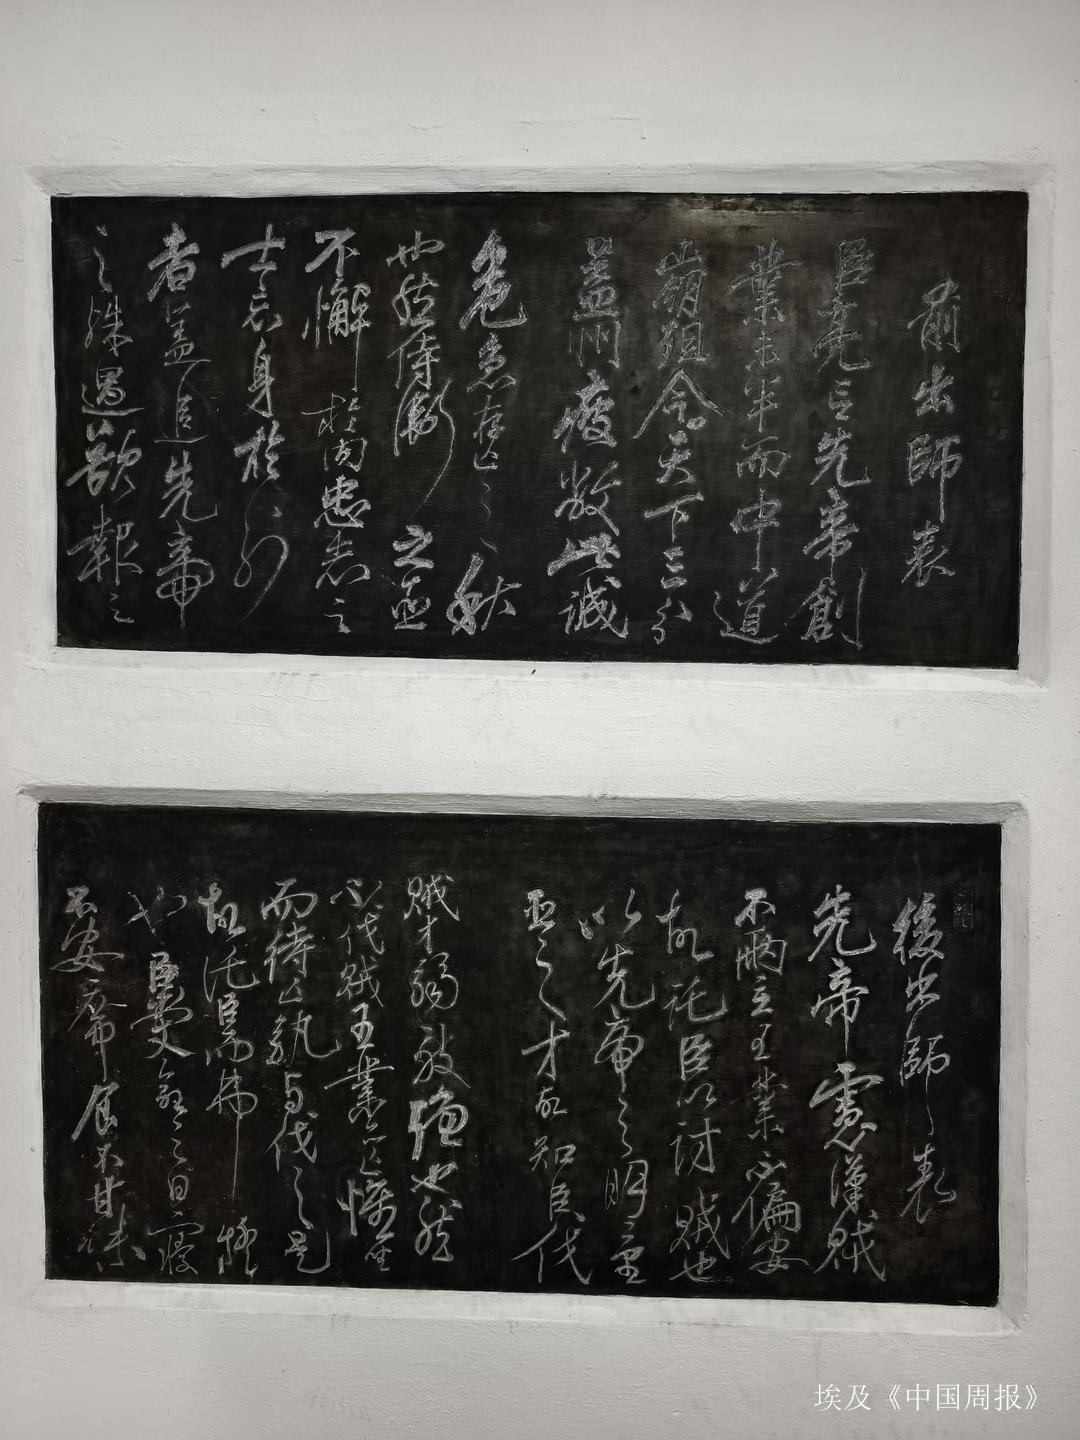 前出師表
臣亮言先帝創
業未半而中道
崩殂今天下三分
益州疲敝此誠
危急存亡之秋
也然侍衛之臣
不懈於內忠志之
士忘身於外
者蓋追先帝
之殊遇欲報之
後出師表
先帝慮漢賊
不兩立王業不偏安
故託臣以討賊也
以先帝之明量
臣之才故知臣伐
賊才弱敵強也然
不伐賊王業亦亡惟坐
而待亡孰與伐之是
故託臣而弗疑
也臣受命之日寢
不安席食不甘味
埃及《中国周报》